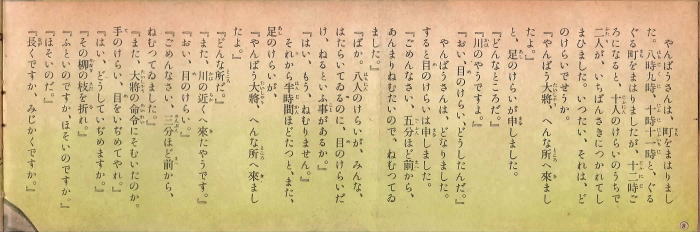 やんばう大將は、町をまはりまし
た。八時九時、十時十一時と、ぐる
ぐる町をまはりましたが、十二時ご
ろになると、十人のけらいのうちで
二人が、いちばんさきにつかれてし
まひました。いつたい、それは、ど
のけらいでせうか。
『やんばう大將、へんな所へ來まし
たよ。』
と、足のけらいが申しました。
『どんなところだ。』
『川のやうですよ。』
『おい、目のけらい、どうしたんだ。』
やんばうさんは、どなりました。
すると目のけらいは申しました。
『ごめんなさい、五分ほど前から、
あんまりねむたいので、ねむつてゐ
ました。』
『ばか。八人のけらいが、みんな、
はたらいてゐるのに、目のけらいだ
け、ねるといふ事があるか。』
『はい、もう、ねむりません。』
それから半時間ほどたつと、また、
足のけらいが、
『やんばう大將、へんな所へ來まし
たよ。』
『どんな所だ。』
『また、川の近くへ來たやうです。』
『おい、目のけらい。』
『ごめんなさい、三分ほど前から、
ねむつてゐました。』
『また、大將の命令にそむいたのか。
手のけらい、目をいぢめてやれ。』
『はい、どうしていぢめますか。』
『その柳の枝を折れ。』
『ふといのですか、ほそいのですか。』
『ほそいのだ。』
『長くですか、みじかくですか。』
8